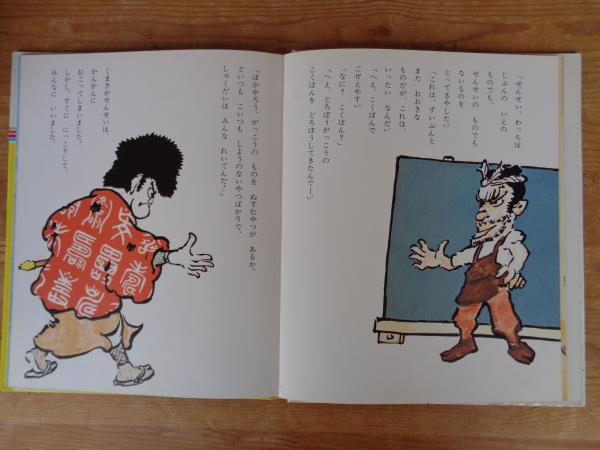 「せんせい、わっちは
じぶんの いえの
ものでも、
せんせいの ものでも
ないものを
とってきやした。」
「これは、ずいぶんと
また おおきな
ものだが、これは、
いったい なんだ。」
「へえ、こくばんで
ごぜえやす。」
「なに? こくばん?」
「へえ、どろぼうがっこうの
こくばんを どろぼうしてきたんでー。」
「ばかやろう、がっこうの ものを ぬすむやつが あるか。
どいつも こいつも しようのないやつばかりで、
しゅくだいは みんな れいてんだ!」
くまさかせんせいは、
かんかんに
おこってしまいました。
しかし、すぐに にっこりして、
みんなに いいました。